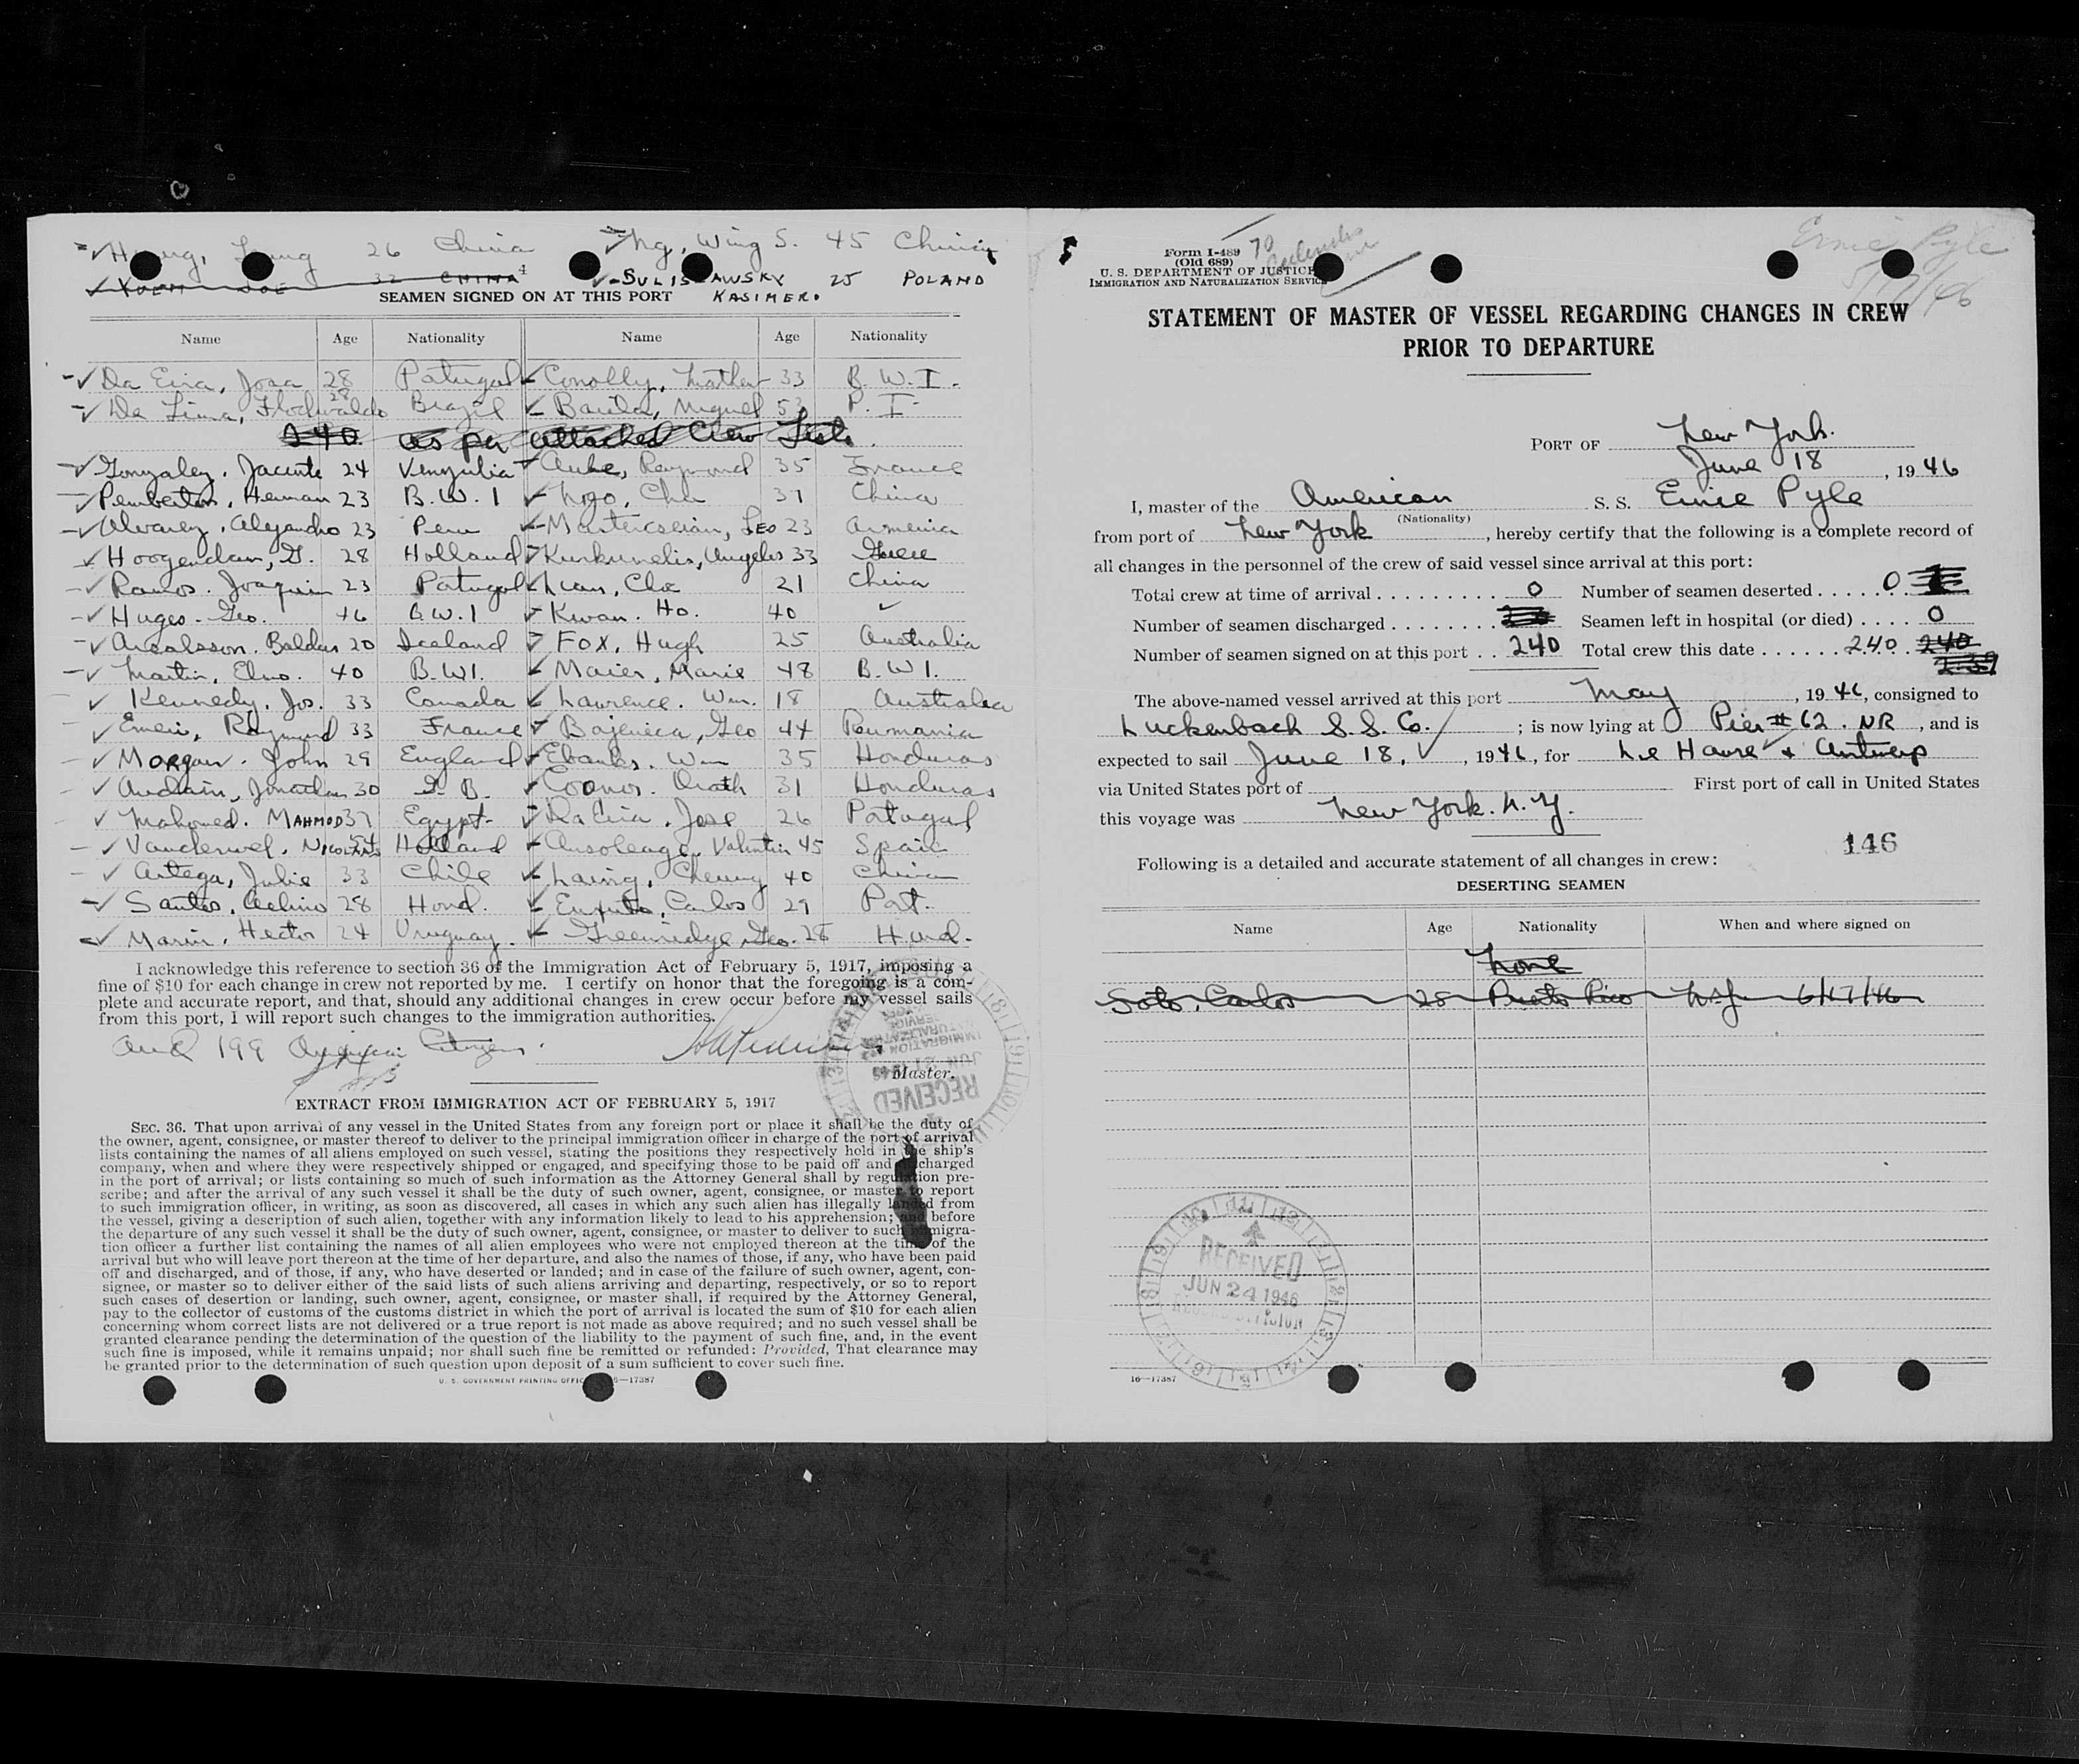 26 China Ng, Wing S. 45 China
32 CHINA SULIS AWSKY 25 POLAND
SEAMEN SIGNED ON AT THIS PORT KASIMER.
Name Age Nationality Name Age Nationality
Da Eira, Josa 28 Patugal Conolly, 33 B.W.I.
De Lima, 28 Brazil Miguel 53 P.I.
240 as per attached Crew Lists
Gonzalez, Jacinto 24 Raymond 35 France
Pemberton, Heman 23 B.W.I 37 China
Alvarez, Alejandro 23 Peru LEO 23 Armenia
Hoogendam, G. 28 Holland Angelos 33 Greece
Ramos. Joaquim 23 Patugal 21 China
Huges. Geo. 46 B.W.I Kwan. Ho. 40 ✓
Baldur 20 Iceland FOX, Hugh 25 Australia
Martin, Elmo. 40 B.W.I. Maier, Marie 48 B.W.I.
Kennedy, Jos. 33 Canada Lawrence. Wm. 18 Australia
Raymond 33 France Geo 44 Roumania
Morgan. John 29 England Ebanks. Wm 35 Honduras
Jonathan 30 G.B. 31 Honduras
Mahomed. MAHMOD 37 Egypt Da Eira. Jose 26 Patugal
Holland Valentin 45 Spain
Artega, Julio 33 Chile Laing, Cheung 40 China
Santos, 28 Hond. Carlos 29 Port.
Marin. Hector 24 Uruguay. Greenidge, Geo. 28 Hond.
I acknowledge this reference to section 36 of the Immigration Act of February 5, 1917, imposing a
fine of $10 for each change in crew not reported by me. I certify on honor that the foregoing is a com-
plete and accurate report, and that, should any additional changes in crew occur before my vessel sails
from this port, I will report such changes to the immigration authorities.
and 199 American Citizens.
Master.
RECEIVED
EXTRACT FROM IMMIGRATION ACT OF FEBRUARY 5, 1917
SEC. 36. That upon arrival of any vessel in the United States from any foreign port or place it shall be the duty of
the owner, agent, consignee, or master thereof to deliver to the principal immigration officer in charge of the port of arrival
lists containing the names of all aliens employed on such vessel, stating the positions they respectively hold in the ship's
company, when and where they were respectively shipped or engaged, and specifying those to be paid off and discharged
in the port of arrival; or lists containing so much of such information as the Attorney General shall by regulation pre-
scribe; and after the arrival of any such vessel it shall be the duty of such owner, agent, consignee, or master to report
to such immigration officer, in writing, as soon as discovered, all cases in which any such alien has illegally landed from
the vessel, giving a description of such alien, together with any information likely to lead to his apprehension; and before
the departure of any such vessel it shall be the duty of such owner, agent, consignee, or master to deliver to such immigra-
tion officer a further list containing the names of all alien employees who were not employed thereon at the time of the
arrival but who will leave port thereon at the time of her departure, and also the names of those, if any, who have been paid
off and discharged, and of those, if any, who have deserted or landed; and in case of the failure of such owner, agent, con-
signee, or master so to deliver either of the said lists of such aliens arriving and departing, respectively, or so to report
such cases of desertion or landing, such owner, agent, consignee, or master shall, if required by the Attorney General,
pay to the collector of customs of the customs district in which the port of arrival is located the sum of $10 for each alien
concerning whom correct lists are not delivered or a true report is not made as above required; and no such vessel shall be
granted clearance pending the determination of the question of the liability to the payment of such fine, and, in the event
such fine is imposed, while it remains unpaid; nor shall such fine be remitted or refunded: Provided, That clearance may
be granted prior to the determination of such question upon deposit of a sum sufficient to cover such fine.
U. S. GOVERNMENT PRINTING OFFICE 16—17387
Form I-489
(Old 689)
U. S. DEPARTMENT OF JUSTICE
IMMIGRATION AND NATURALIZATION SERVICE
70
Ernie Pyle
STATEMENT OF MASTER OF VESSEL REGARDING CHANGES IN CREW
PRIOR TO DEPARTURE
PORT OF New York.
June 18, 1946
I, master of the American S. S. Ernie Pyle
(Nationality)
from port of New York, hereby certify that the following is a complete record of
all changes in the personnel of the crew of said vessel since arrival at this port:
Total crew at time of arrival 0 Number of seamen deserted 0
Number of seamen discharged Seamen left in hospital (or died) 0
Number of seamen signed on at this port 240 Total crew this date 240 240
239
The above-named vessel arrived at this port May, 1946, consigned to
Luckenbach S.S. Co. ; is now lying at Pier #62. NR, and is
expected to sail June 18, 1946, for Le Havre & Antwerp
via United States port of First port of call in United States
this voyage was New York. N.Y.
146
Following is a detailed and accurate statement of all changes in crew:
DESERTING SEAMEN
Name Age Nationality When and where signed on
None
Soto, Carlos 28 Puerto Rico 6/17/46
RECEIVED
JUN 24 1946
16—17387